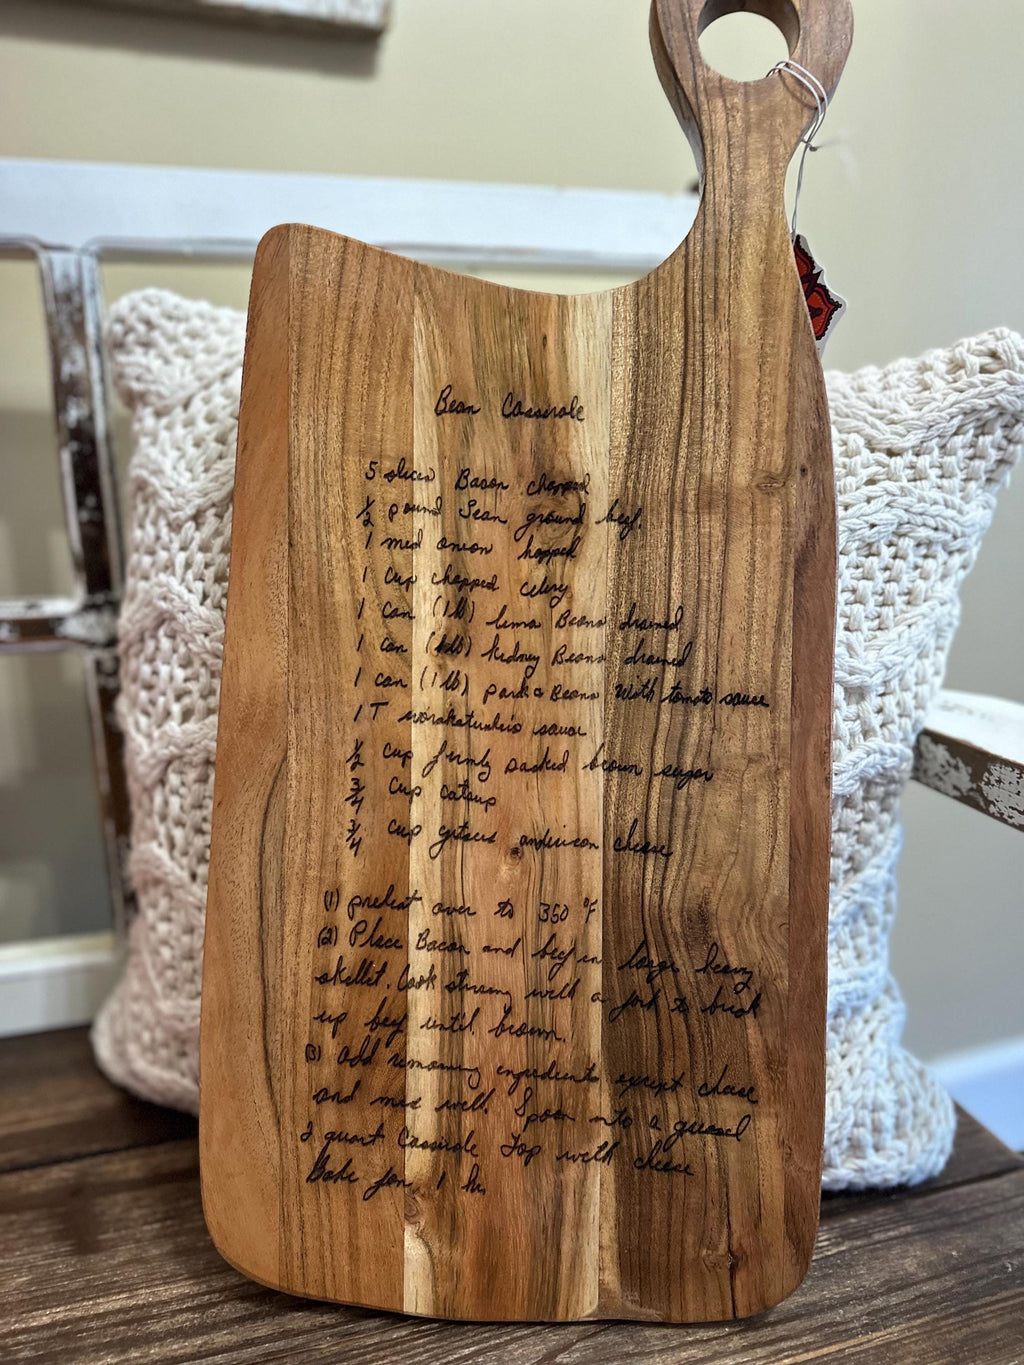 Bean Casserole
5 slices Bacon chopped
1/2 pound Lean ground beef.
1 med onion hopped
1 cup chopped celery
1 can (1 lb) lima Beans drained
1 can (1 lb) kidney Beans drained
1 can (1 lb) pork & Beans with tomato sauce
1 T sauce
1/2 cup firmly packed brown sugar
3/4 cup catsup
3/4 cup american cheese
(1) preheat oven to 350 °F
(2) Place Bacon and beef in large heavy
skillet. Cook stirring well a fork to break
up beef until brown.
(3) add remaining ingredients except cheese
and mix well. Spoon into a greased
2 quart Casserole Top with cheese
Bake for 1 hr.